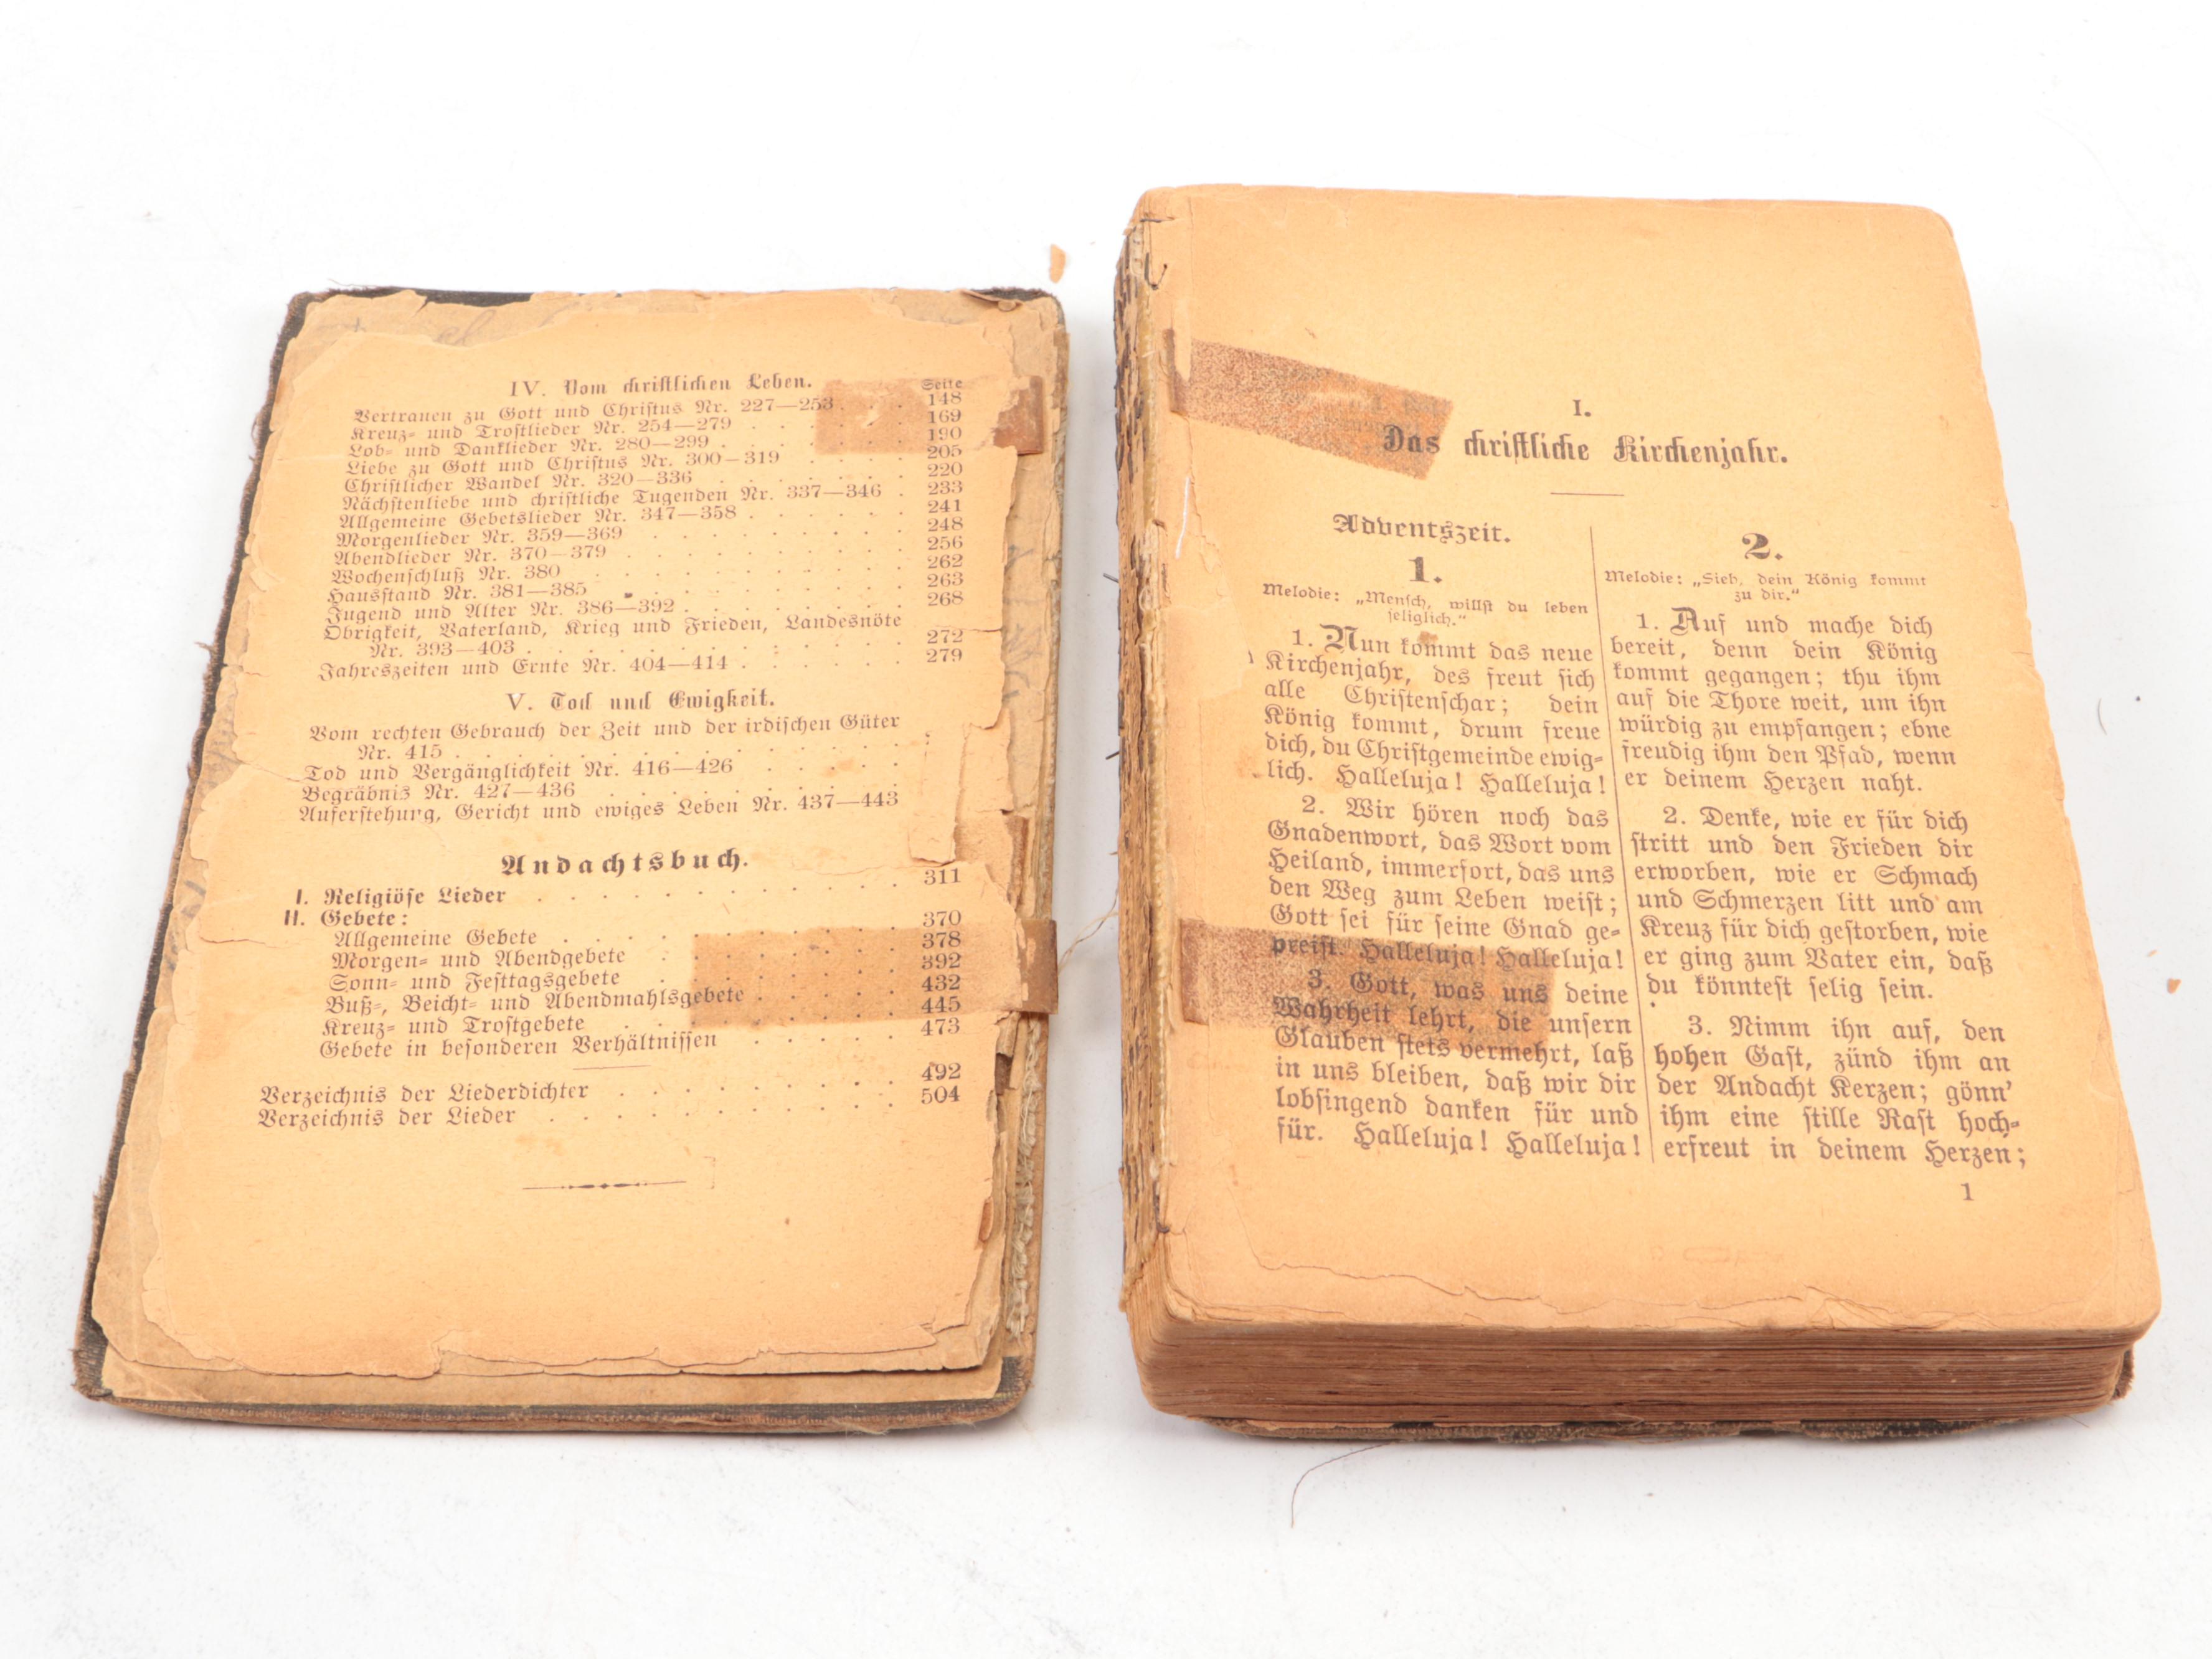 IV. Vom christlichen Leben.
Seite
Vertrauen zu Gott und Christus Nr. 227—253 . . . 148
Kreuz- und Trostlieder Nr. 254—279 . . . . . 169
Lob- und Danklieder Nr. 280—299 . . . . . . 190
Liebe zu Gott und Christus Nr. 300—319 . . . . 205
Christlicher Wandel Nr. 320—336 . . . . . . 220
Nächstenliebe und christliche Tugenden Nr. 337—346 . 233
Allgemeine Gebetslieder Nr. 347—358 . . . . . . 241
Morgenlieder Nr. 359—369 . . . . . . . . 248
Abendlieder Nr. 370—379 . . . . . . . . . 256
Wochenschluß Nr. 380 . . . . . . . . . . 262
Hausstand Nr. 381—385 . . . . . . . . . 263
Jugend und Alter Nr. 386—392 . . . . . . . . 268
Obrigkeit, Vaterland, Krieg und Frieden, Landesnöte
Nr. 393—403 . . . . . . . . . . . . 272
Jahreszeiten und Ernte Nr. 404—414 . . . . . . 279
V. Tod und Ewigkeit.
Vom rechten Gebrauch der Zeit und der irdischen Güter
Nr. 415 . . . . . . . . . . . . .
Tod und Vergänglichkeit Nr. 416—426 . . . . .
Begräbnis Nr. 427—436 . . . . . . . . .
Auferstehung, Gericht und ewiges Leben Nr. 437—443
Andachtsbuch.
I. Religiöse Lieder . . . . . . . . . . . 311
II. Gebete:
Allgemeine Gebete . . . . . . . . . . 370
Morgen- und Abendgebete . . . . . . . . 378
Sonn- und Festtagsgebete . . . . . . . . 392
Buß-, Beicht- und Abendmahlsgebete . . . . . 432
Kreuz- und Trostgebete . . . . . . . . . 445
Gebete in besonderen Verhältnissen . . . . . 473
Verzeichnis der Liederdichter . . . . . . . . . 492
Verzeichnis der Lieder . . . . . . . . . . . 504
I.
Das christliche Kirchenjahr.
Adventszeit.
1.
Melodie: „Mensch, willst du leben
seliglich.“
1. Nun kommt das neue
Kirchenjahr, des freut sich
alle Christenschar; dein
König kommt, drum freue
dich, du Christgemeinde ewig-
lich. Halleluja! Halleluja!
2. Wir hören noch das
Gnadenwort, das Wort vom
Heiland, immerfort, das uns
den Weg zum Leben weist;
Gott sei für seine Gnad ge-
preist. Halleluja! Halleluja!
3. Gott, was uns deine
Wahrheit lehrt, die unsern
Glauben stets vermehrt, laß
in uns bleiben, daß wir dir
lobsingend danken für und
für. Halleluja! Halleluja!
2.
Melodie: „Sieh, dein König kommt
zu dir.“
1. Auf und mache dich
bereit, denn dein König
kommt gegangen; thu ihm
auf die Thore weit, um ihn
würdig zu empfangen; ebne
freudig ihm den Pfad, wenn
er deinem Herzen naht.
2. Denke, wie er für dich
stritt und den Frieden dir
erworben, wie er Schmach
und Schmerzen litt und am
Kreuz für dich gestorben, wie
er ging zum Vater ein, daß
du könntest selig sein.
3. Nimm ihn auf, den
hohen Gast, zünd ihm an
der Andacht Kerzen; gönn'
ihm eine stille Rast hoch-
erfreut in deinem Herzen;
1